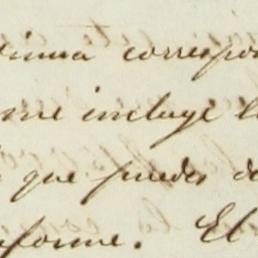 tinua correspon
me incluye l
que puedes de
nforme. El